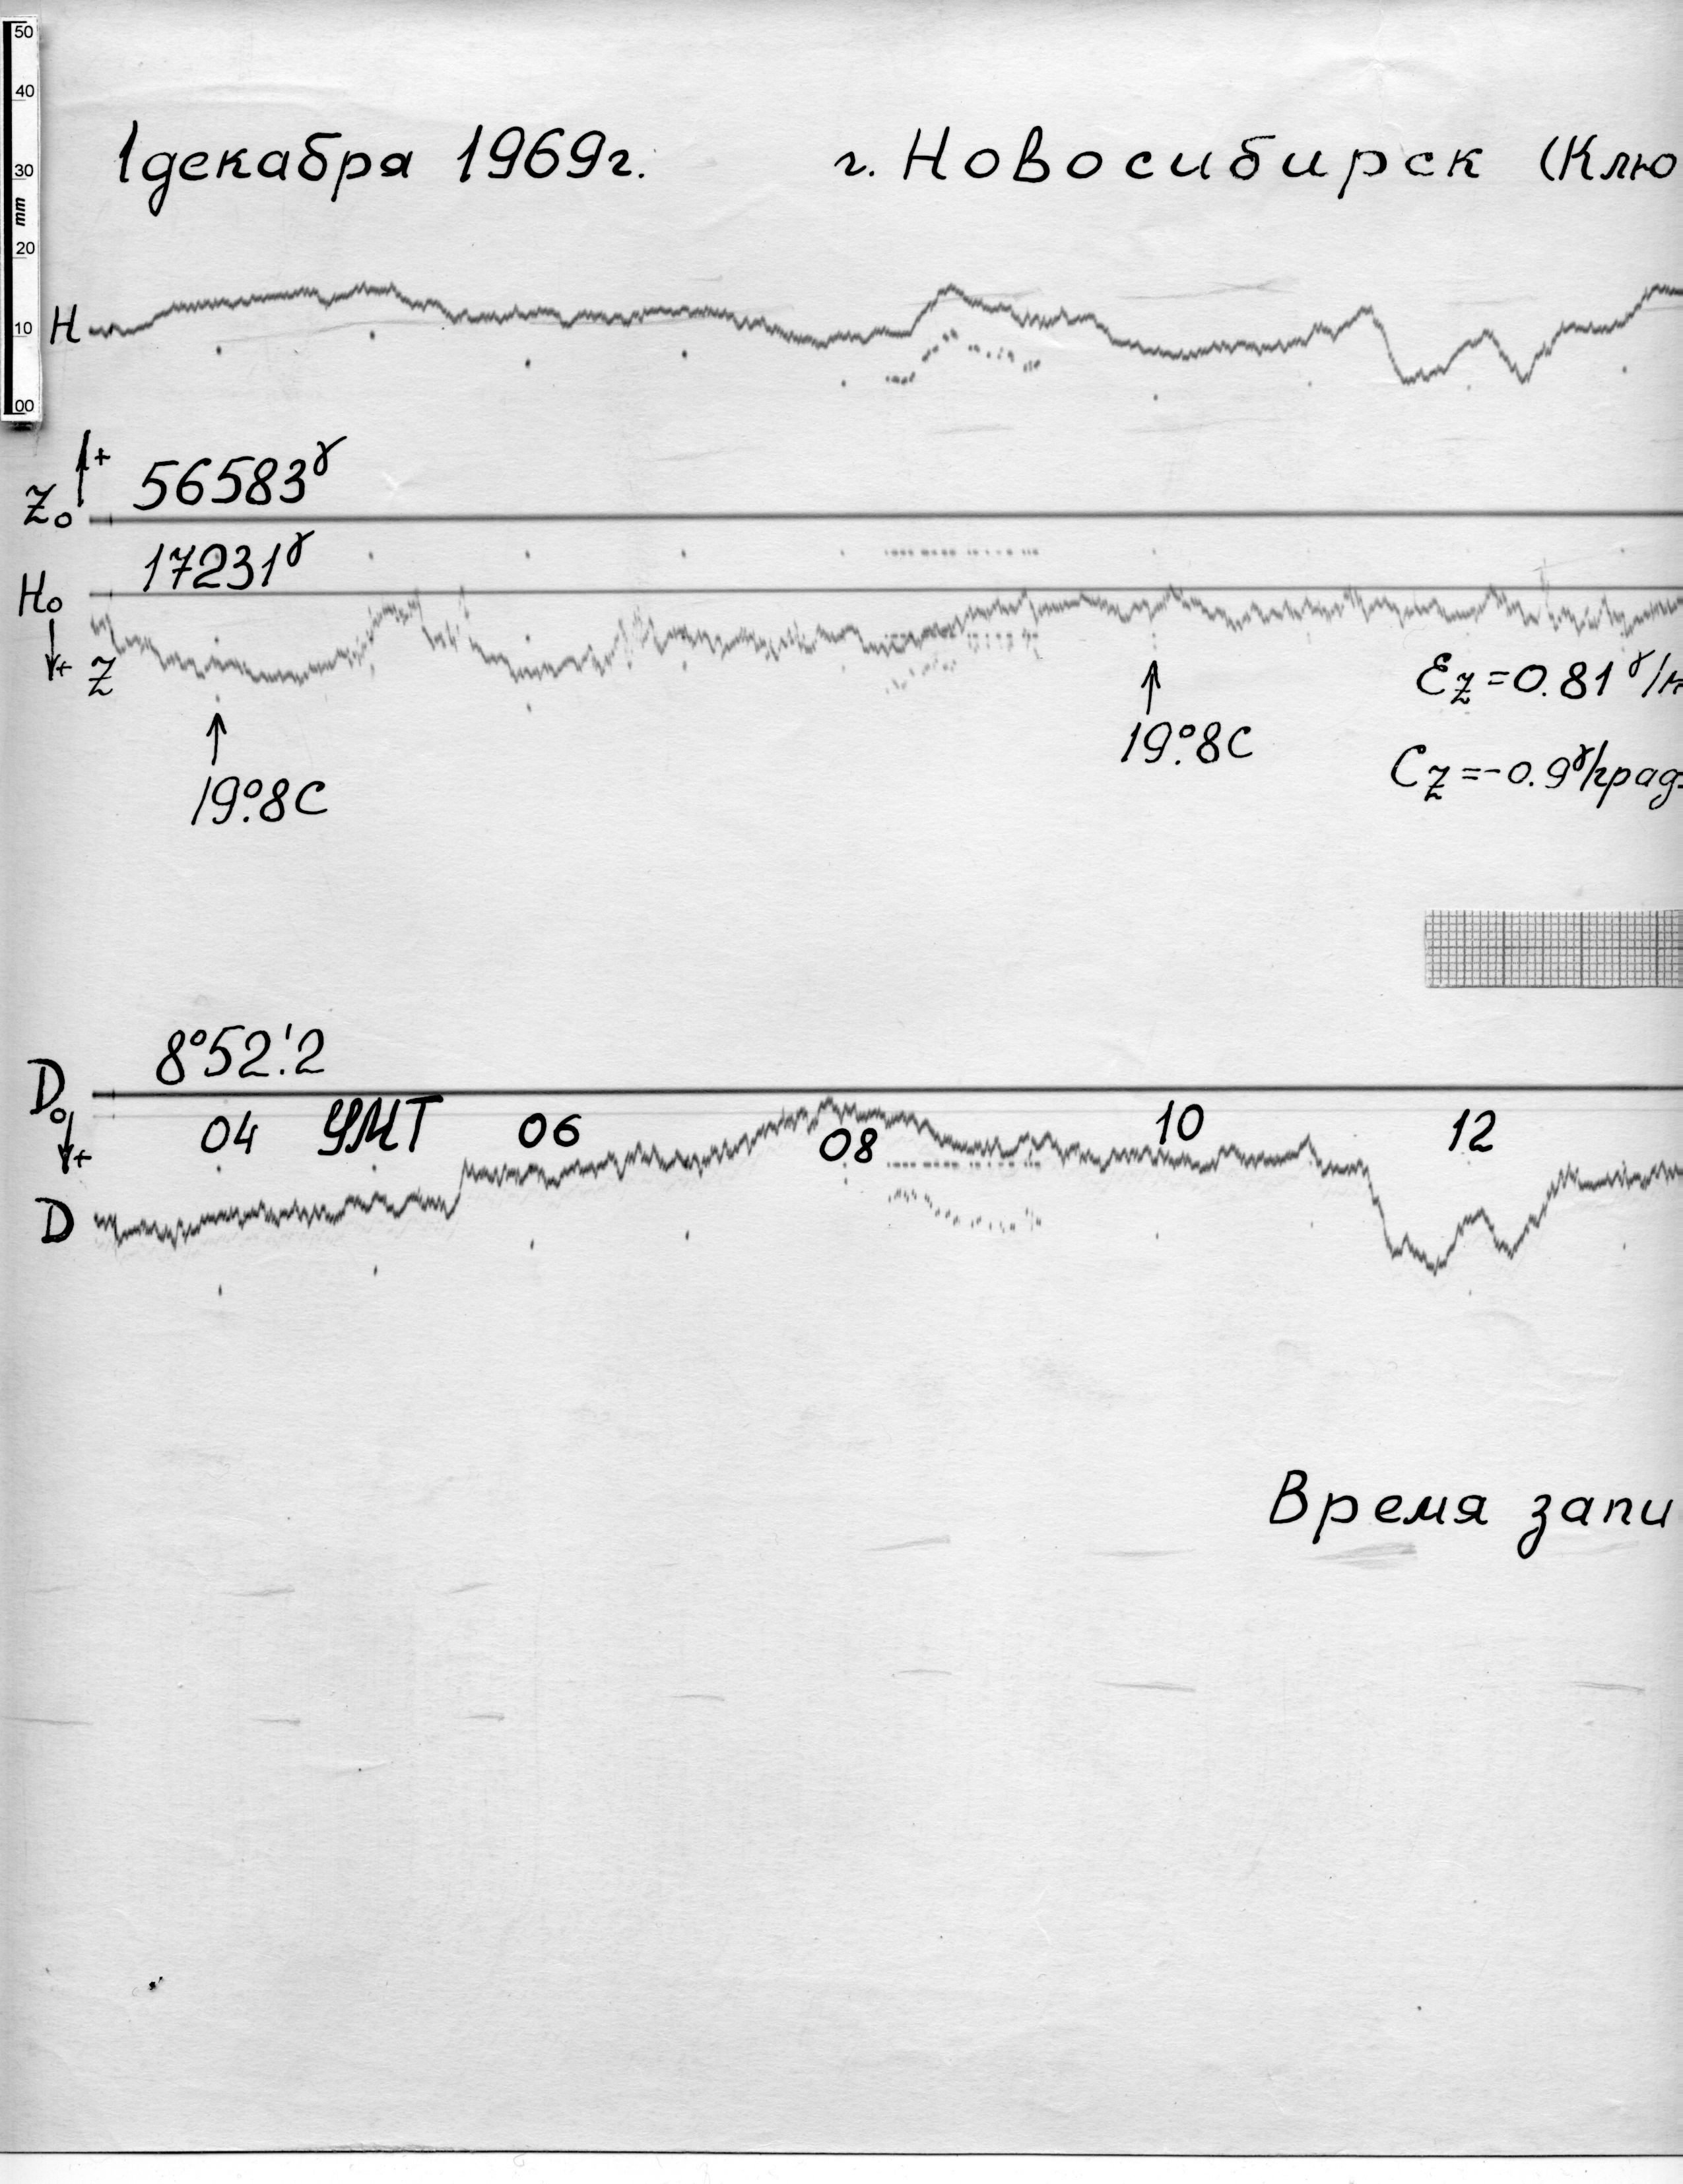 50
40
30
mm
20
10
00
1 декабря 1969г. г. Новосибирск (Клю
H
+ 56583γ
Z₀
17231γ
H₀
+ Z
Ɛz=0.81γ/м
19°.8C
Cz=-0.9γ/град
19°.8C
8°52'.2
D₀
04 УМТ 06 08 10 12
+
D
Время запи